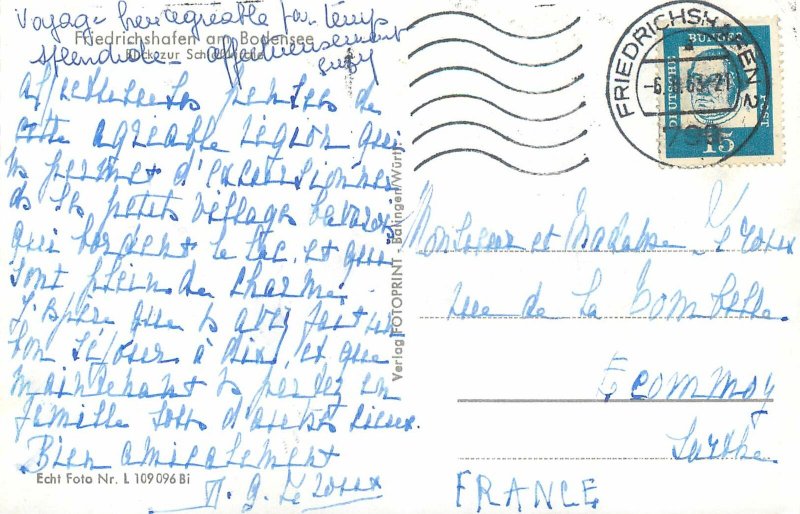 Voyage très agréable par temps
splendide - affectueusement
Suzy
Friedrichshafen am Bodensee
Blick zur Schloßkirche
Affectueuses pensées de
cette agréable région qui
ns permet d'excursionner
ds les petits villages bavarois
qui bordent le lac et qui
sont plein de charme.
J'espère que vs avez fait un
bon séjour à
et que
maintenant vs partez en
famille vers d'autres lieux.
Bien amicalement
G. Le Roux
Echt Foto Nr. L 109 096 Bi
Verlag FOTOPRINT - Balingen/Württ.
FRIEDRICHSHAFEN 2
799
DEUTSCHE
BUNDES
POST
15
Monsieur et Madame Leroux
rue de la
Ecommoy
Sarthe
FRANCE